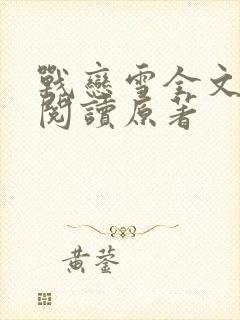 戰戀雪全文
閱讀原著
黃蓥